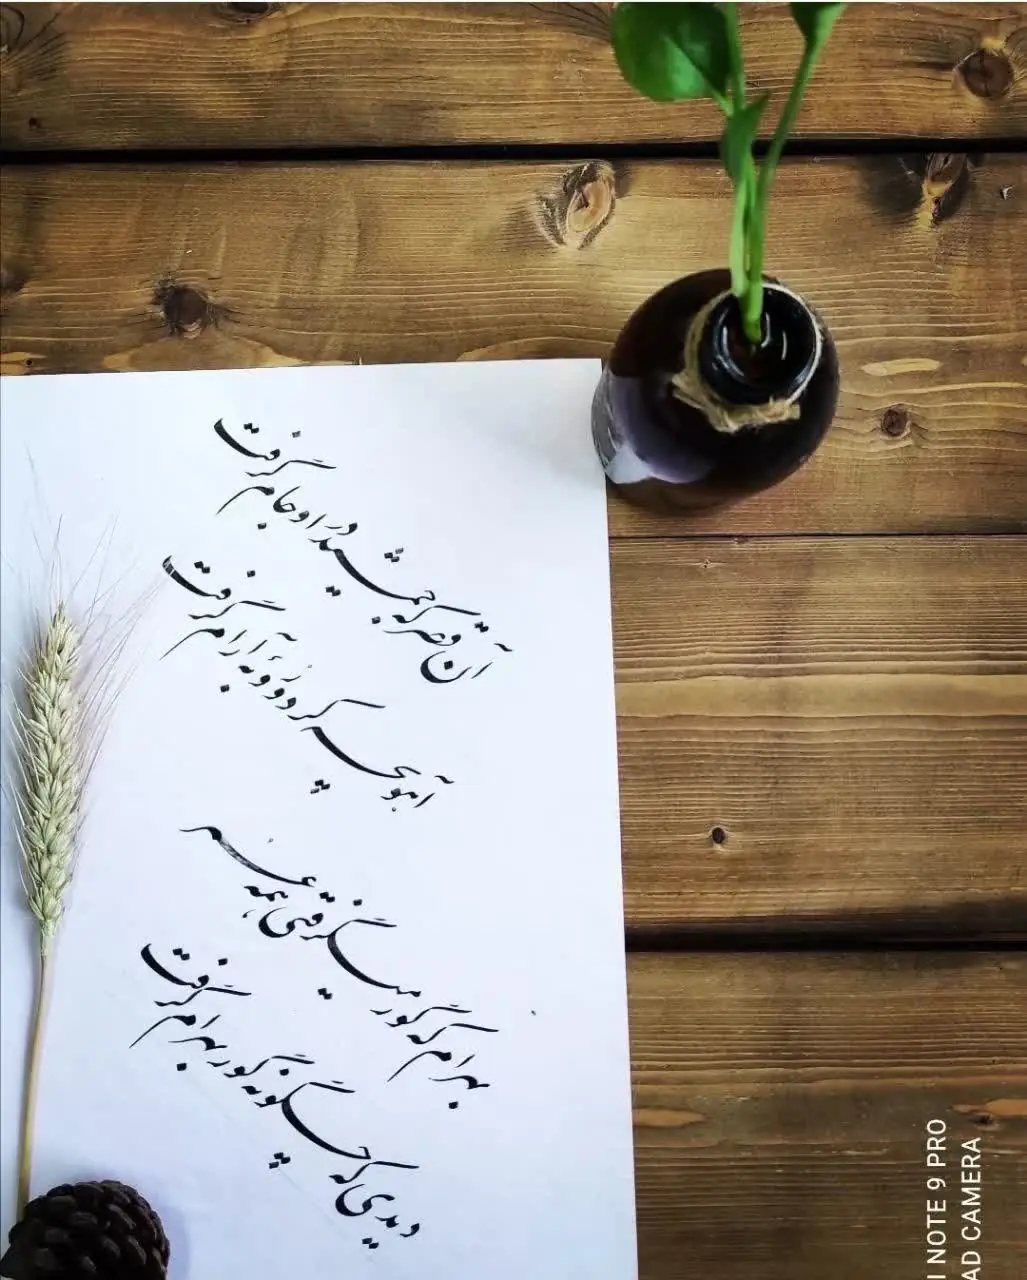 آن قصر که جمشید در او جام گرفت
آهو بچه کرد و روبه آرام گرفت
بهرام که گور میگرفتی همه عمر
دیدی که چگونه گور بهرام گرفت
I NOTE 9 PRO
AD CAMERA